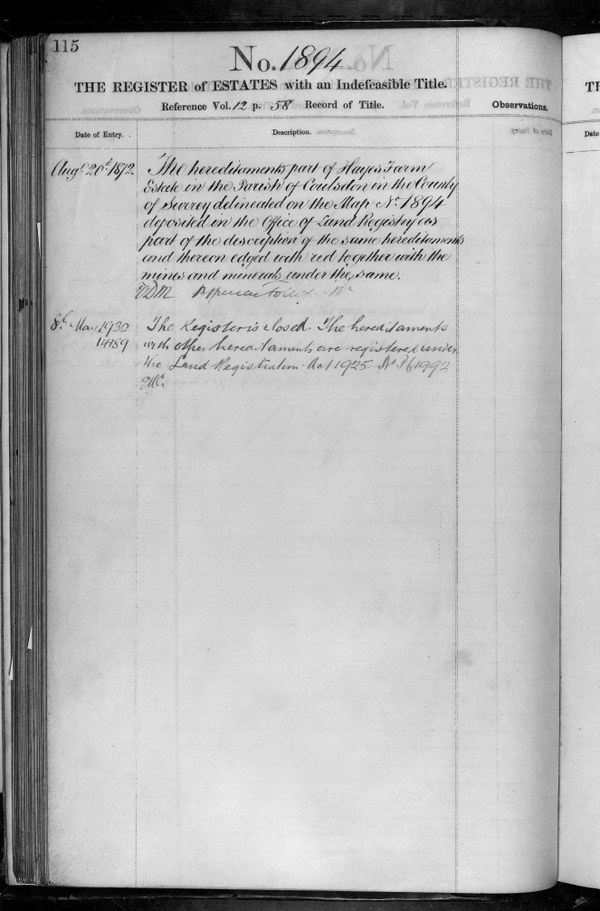 115
No. 1894
THE REGISTER of ESTATES with an Indefeasible Title.
Reference Vol. 12 p. 58 Record of Title.
Observations.
Date of Entry.
Description.
Date
Augt 20th 1872.
The hereditaments part of Hayes Farm
Estate in the Parish of Coulsdon in the County
of Surrey delineated on the Map No. 1894
deposited in the Office of Land Registry as
part of the description of the same hereditaments
and thereon edged with red together with the
mines and minerals under the same.
8th May 1930
14189
The Register is closed. The hereditaments
with other hereditaments are registered under
the Land Registration Act 1925. No.